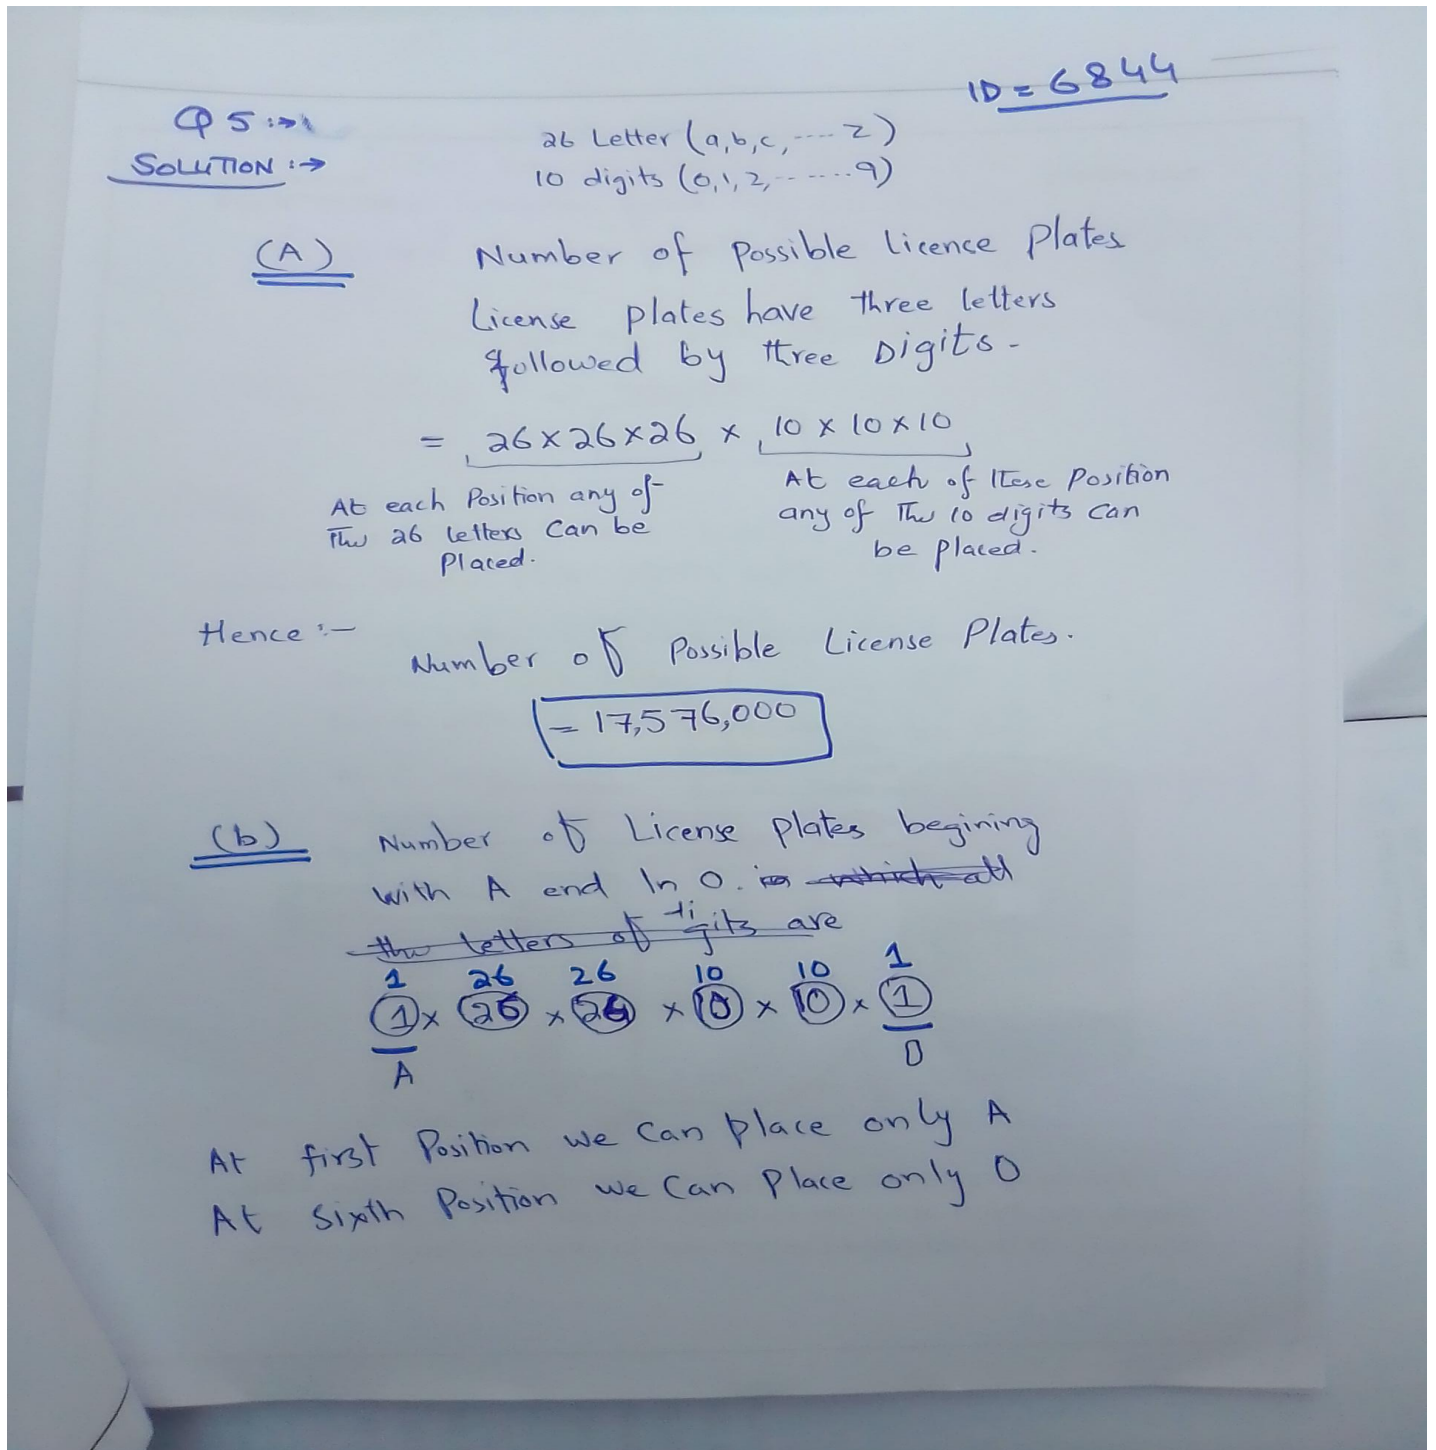 ID = 6844
Q 5 :→
SOLUTION :→
26 Letter (a,b,c,.... z)
10 digits (0,1,2,.......9)
(A)
Number of Possible licence Plates
License plates have three letters
followed by three Digits -
= 26 × 26 × 26 × 10 × 10 × 10
At each Position any of
The 26 letters Can be
Placed.
At each of these Position
any of The 10 digits can
be placed.
Hence :-
Number of Possible License Plates.
= 17,576,000
(b)
Number of License plates begining
with A end In 0. in which all
the letters of digits are
1 26 26 10 10 1
1 × 26 × 26 × 10 × 10 × 1
A 0
At first Position we Can place only A
At Sixth Position we Can Place only 0